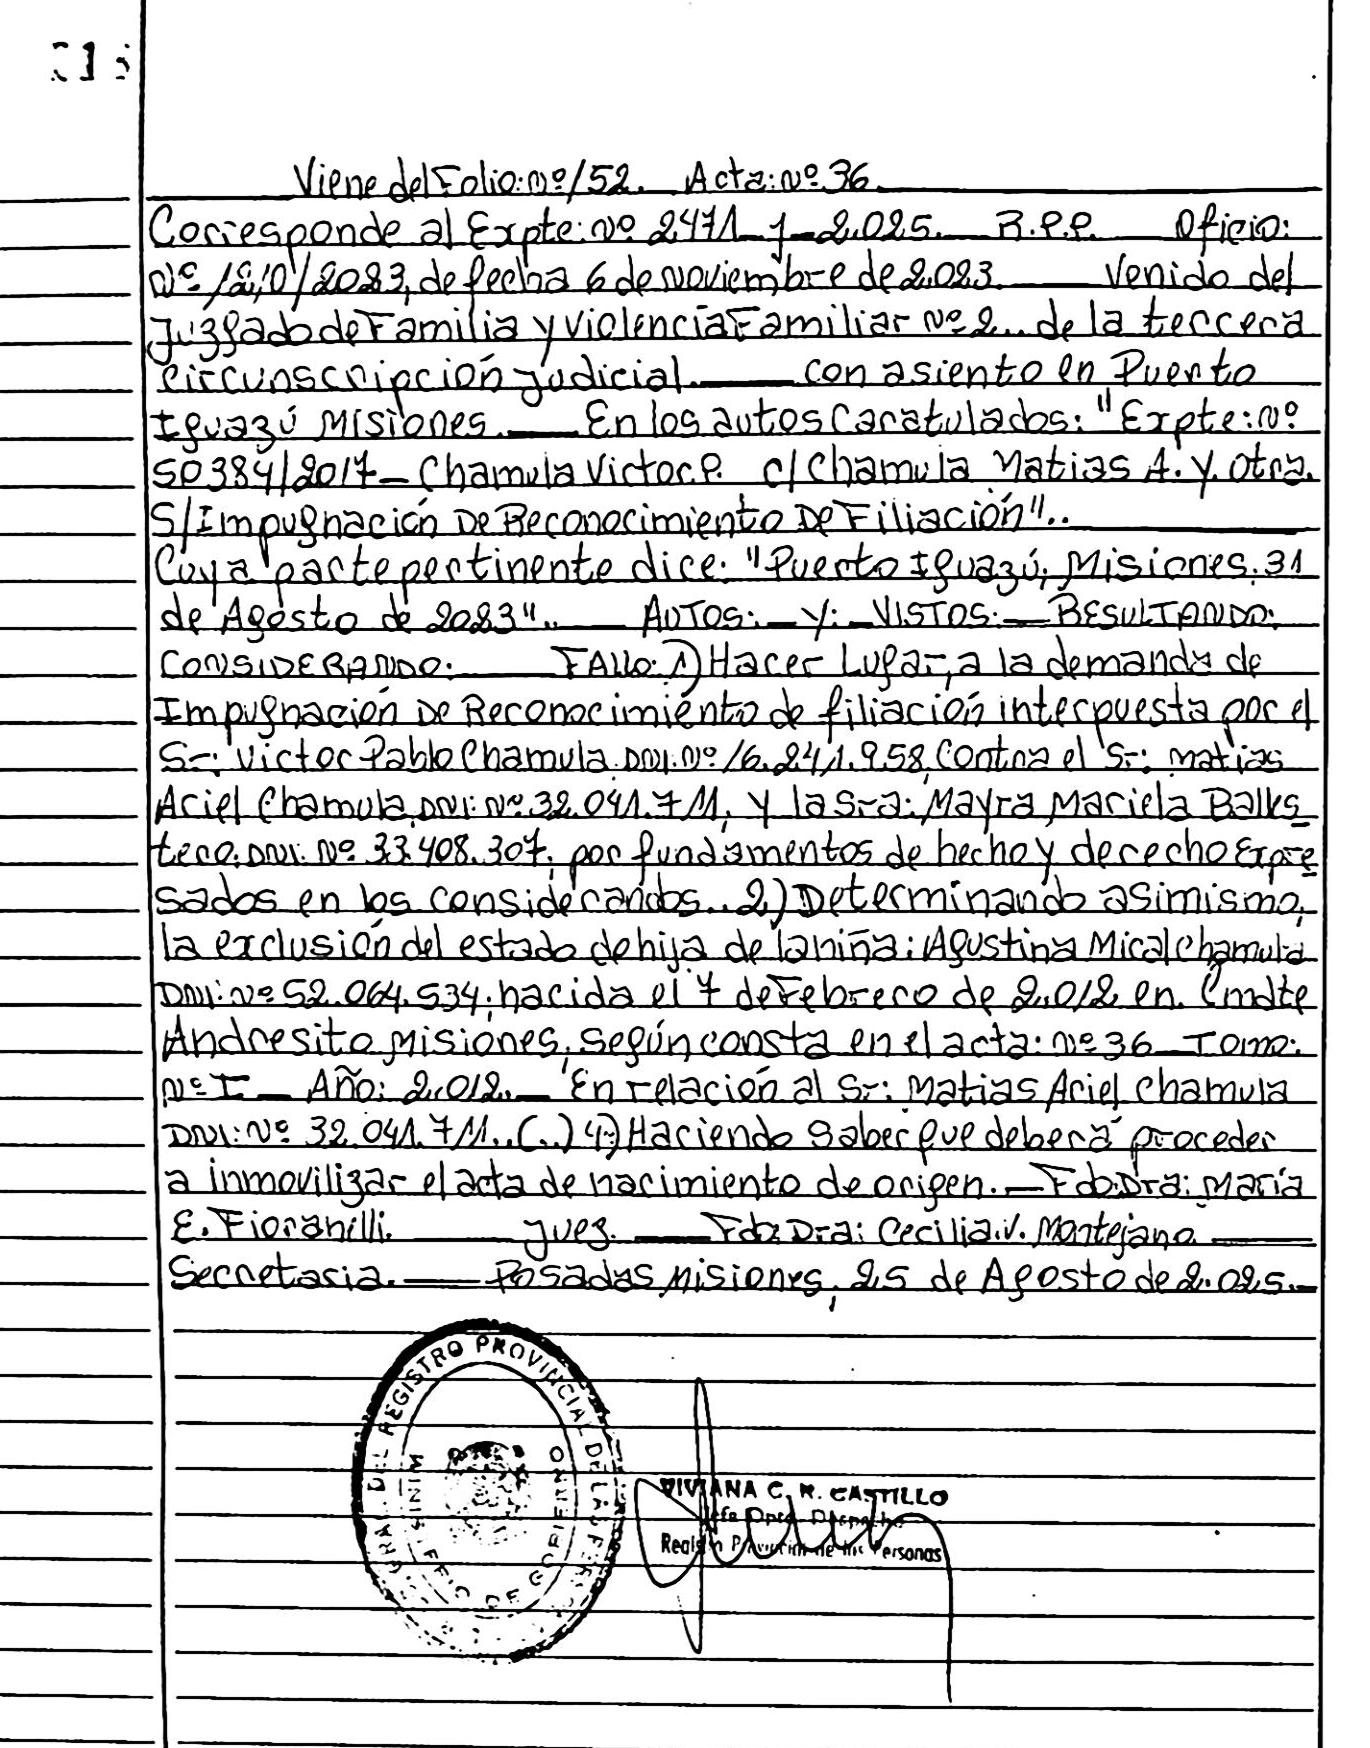 Viene del Folio: Nº 152. Acta: Nº 36.
Corresponde al Expte: Nº 2471-J-2.025. R.P.P. Oficio:
Nº 1210/2023, de fecha 6 de Noviembre de 2.023. Venido del
Juzgado de Familia y Violencia Familiar Nº 2.. de la tercera
Circunscripción Judicial. con asiento en Puerto
Iguazú Misiones. En los autos Caratulados: "Expte: Nº
50384/2017- Chamula Victor P. c/ Chamula Matias A. y. Otra.
S/Impugnación De Reconocimiento De Filiación"..
Cuya parte pertinente dice: "Puerto Iguazú, Misiones. 31
de Agosto de 2023".. AUTOS: Y: VISTOS: RESULTANDO:
CONSIDERANDO: FALLO: 1) Hacer Lugar, a la demanda de
Impugnación De Reconocimiento de filiación interpuesta por el
Sr: Victor Pablo Chamula. DNI: Nº 16.241.958, Contra el Sr: Matias
Ariel Chamula, DNI: Nº 32.041.711, y la Sra: Mayra Mariela Balles
tero. DNI. Nº 33.408.307, por fundamentos de hecho y derecho Expre
sados en los considerandos.. 2) Determinando asimismo,
la exclusión del estado de hija de la niña: Agustina Mical Chamula
DNI: Nº 52.064.534, nacida el 7 de Febrero de 2.012 en. Cmdte
Andresito Misiones, Según consta en el acta: Nº 36 Tomo:
Nº I Año: 2.012. En relación al Sr: Matias Ariel Chamula
DNI: Nº 32.041.711..(..) 4) Haciendo Saber que deberá proceder
a inmovilizar el acta de nacimiento de origen. Fdo: Dra: María
E. Fioranelli. Juez. Fdo: Dra: Cecilia. V. Montejano
Secretaria. Posadas Misiones, 25 de Agosto de 2.025.
REGISTRO PROVINCIAL DE LAS
MINISTERIO DE GOBIERNO
VIVIANA C. R. CASTILLO
Jefa Dpto. Despacho
Registro Provincial de las Personas